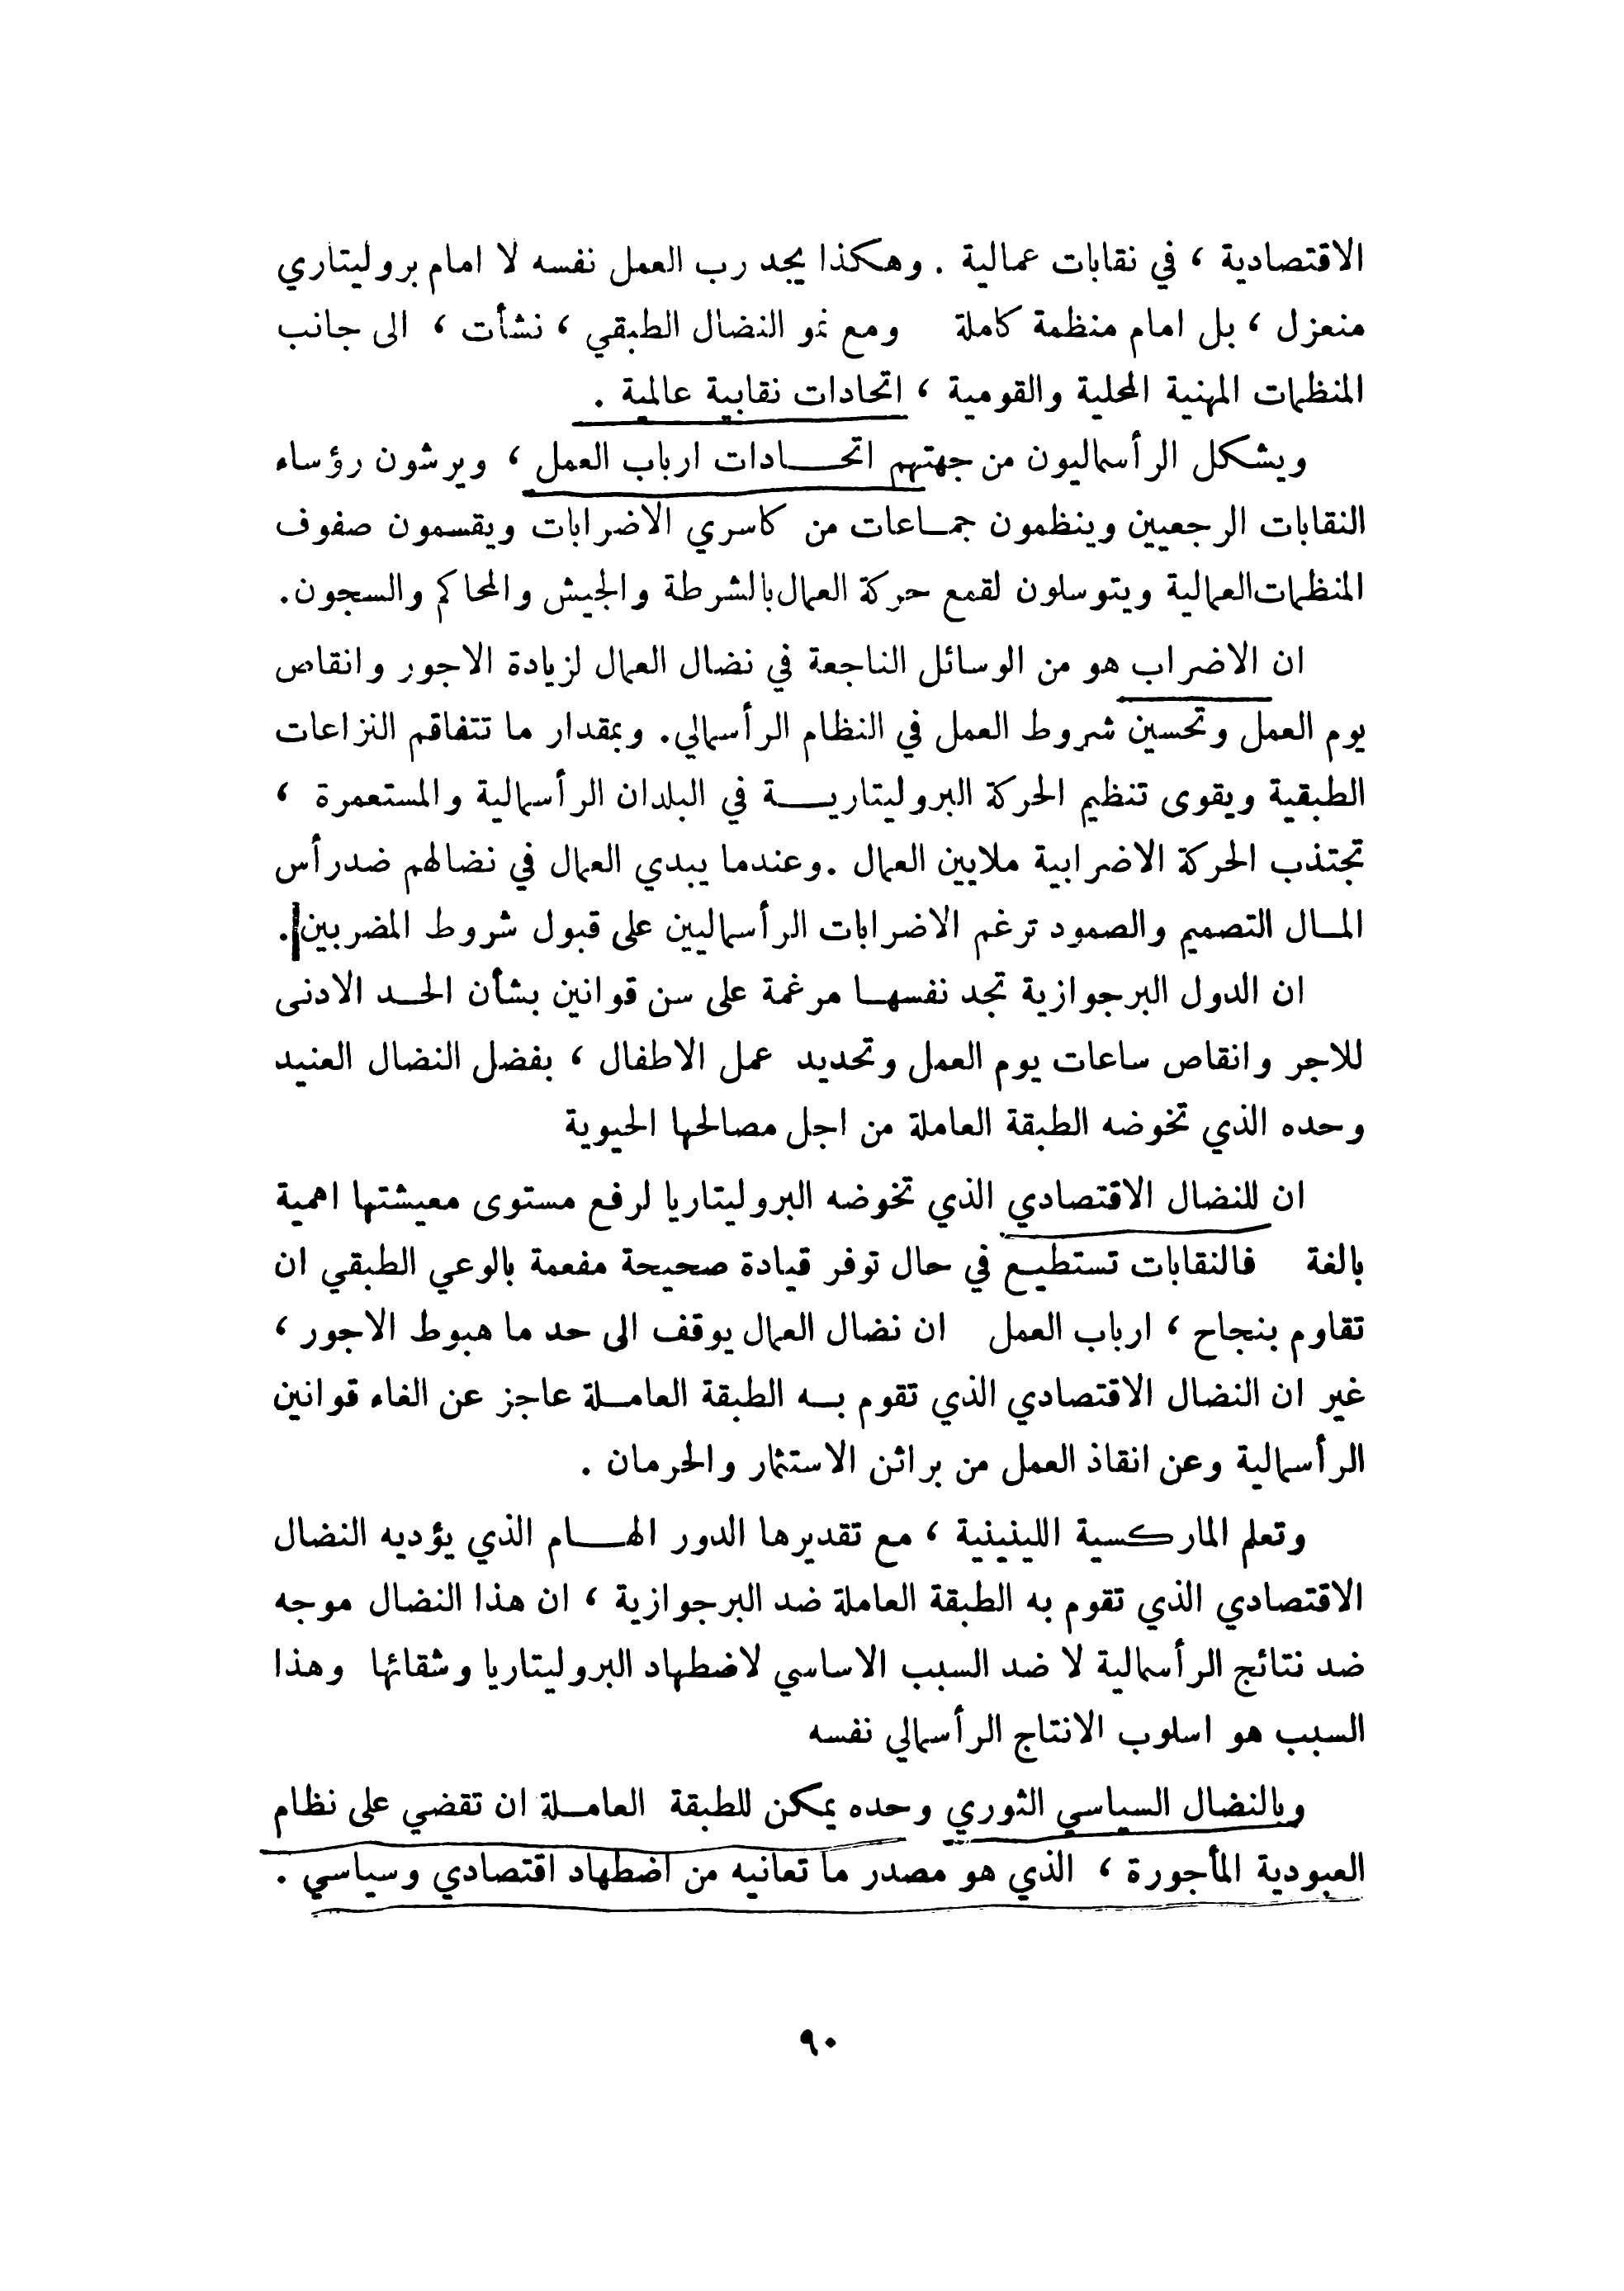 الاقتصادية ، في نقابات عمالية . وهكذا يجد رب العمل نفسه لا امام بروليتاري
منعزل ، بل امام منظمة كاملة ومع نمو النضال الطبقي ، نشأت ، الى جانب
المنظمات المهنية المحلية والقومية ، اتحادات نقابية عالمية .
ويشكل الرأسماليون من جهتهم اتحـــادات ارباب العمل ، ويرشون رؤساء
النقابات الرجعيين وينظمون جمـاعات من كاسري الاضرابات ويقسمون صفوف
المنظمات العمالية ويتوسلون لقمع حركة العمال بالشرطة والجيش والمحاكم والسجون.
ان الاضراب هو من الوسائل الناجعة في نضال العمال لزيادة الاجور وانقاص
يوم العمل وتحسين شروط العمل في النظام الرأسمالي. وبمقدار ما تتفاقم النزاعات
الطبقية ويقوى تنظيم الحركة البروليتاريـــة في البلدان الرأسمالية والمستعمرة ،
تجتذب الحركة الاضرابية ملايين العمال .وعندما يبدي العمال في نضالهم ضد رأس
المـال التصميم والصمود ترغم الاضرابات الرأسماليين على قبول شروط المضربين.
ان الدول البرجوازية تجد نفسهـا مرغمة على سن قوانين بشأن الحـد الادنى
للاجر وانقاص ساعات يوم العمل وتحديد عمل الاطفال ، بفضل النضال العنيد
وحده الذي تخوضه الطبقة العاملة من اجل مصالحها الحيوية
ان للنضال الاقتصادي الذي تخوضه البروليتاريا لرفع مستوى معيشتها اهمية
بالغة فالنقابات تستطيـع في حال توفر قيادة صحيحة مفعمة بالوعي الطبقي ان
تقاوم بنجاح ، ارباب العمل ان نضال العمال يوقف الى حد ما هبوط الاجور ،
غير ان النضال الاقتصادي الذي تقوم بـه الطبقة العامـلة عاجز عن الغاء قوانين
الرأسمالية وعن انقاذ العمل من براثن الاستثمار والحرمان .
وتعلم الماركسية اللينينية ، مع تقديرها الدور الهـــام الذي يؤديه النضال
الاقتصادي الذي تقوم به الطبقة العاملة ضد البرجوازية ، ان هذا النضال موجه
ضد نتائج الرأسمالية لا ضد السبب الاساسي لاضطهاد البروليتاريا وشقائها وهذا
السبب هو اسلوب الانتاج الرأسمالي نفسه
وبالنضال السياسي الثوري وحده يمكن للطبقة العامـلة ان تقضي على نظام
العبودية المأجورة ، الذي هو مصدر ما تعانيه من اضطهاد اقتصادي وسياسي .
٩٠